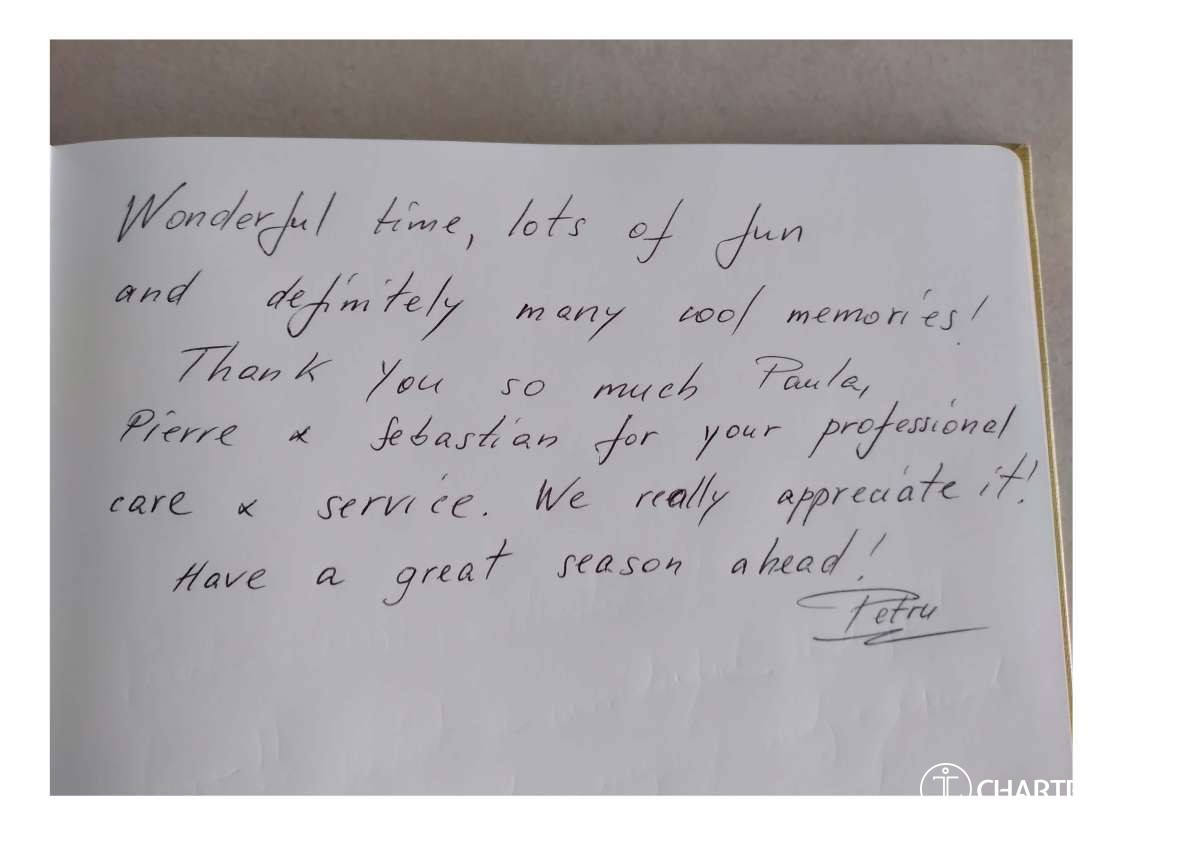 Wonderful time, lots of fun
and definitely many cool memories!
Thank You so much Paula,
Pierre & Sebastian for your professional
care & service. We really appreciate it!
Have a great season ahead!
Petru
CHARTE